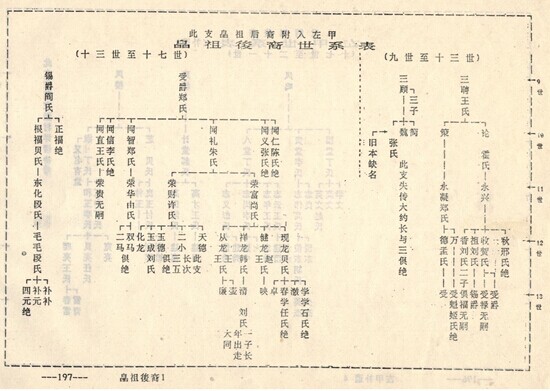 此支晶祖后裔附入左甲
晶祖後裔世系表
(九世至十三世)
(十三世至十七世)
9世
11世
12世
13世
三聘王氏
三顾
三子
张氏
旧本缺名
此支失传大约长与三俱绝
霍氏
永兴
策
永凝郑氏
德孟氏
秋邢氏
收贺氏
祖刘氏
香刘氏
受爵
受禄无嗣
锡爵
二子俱福无嗣
受魁姬氏绝
受爵郑氏
闻仁陈氏绝
闻义张氏绝
闻礼朱氏
闻智郑氏
闻信李氏绝
闻直王氏
荣富尚氏
荣财许氏
荣华由氏
荣贵无嗣
现龙贝氏
健龙赵
祥龙韩氏
从龙王
学学石氏绝
春学任氏绝
映
清
刘氏
一子长年出走大同
天德此支
二小三五
长次俱绝
王德俱绝
王成刘氏
化龙
双马
二马俱绝
锡爵阎氏
正福绝
根福贝氏
东化段氏
毛毛段氏
补补
补元
四元绝
—197—
晶祖後裔1